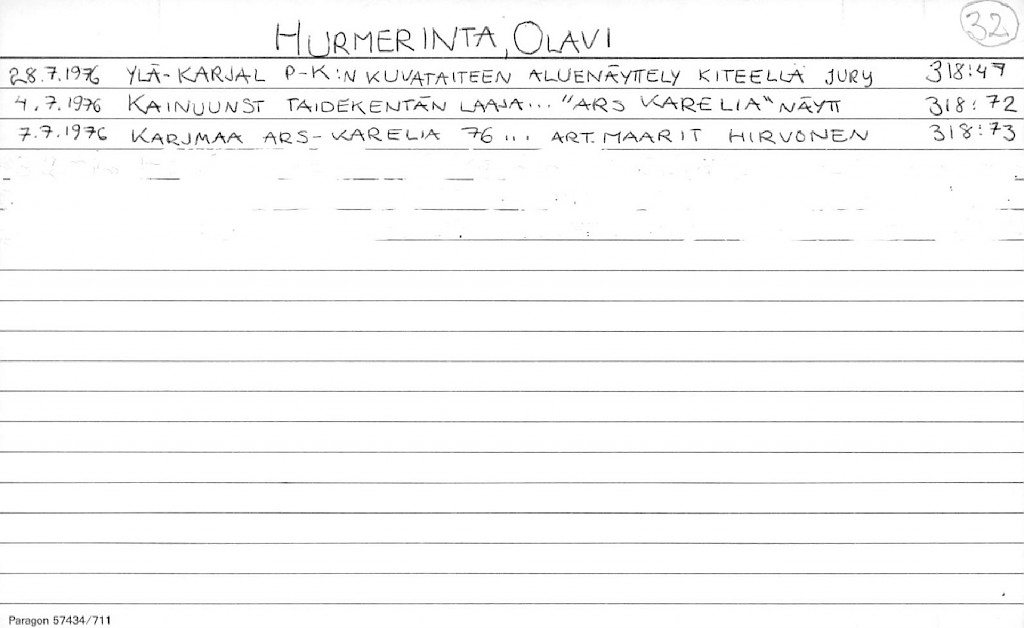 32
HURMERINTA, OLAVI
28.7.1976 YLÄ-KARJAL P-K:N KUVATAITEEN ALUENÄYTTELY KITEELLÄ JURY 318:47
4.7.1976 KAINUUNST TAIDEKENTÄN LAAJA... "ARS KARELIA" NÄYTT 318:72
7.7.1976 KARJMAA ARS-KARELIA 76... ART. MAARIT HIRVONEN 318:73
Paragon 57434/711